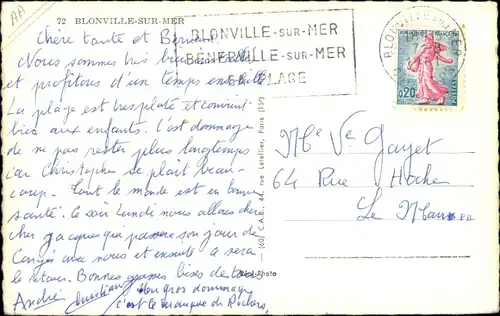 72 BLONVILLE-SUR-MER
Chère tante et Bernard.
Nous sommes très bien installés
et profitons d'un temps ensoleillé
La plage est très plate et convient
bien aux enfants. C'est dommage
de ne pas rester plus longtemps
car Christophe se plait beau-
coup. Tout le monde est en bonne
santé. Le soir Lundi nous allons cher
cher Jacques qui passera son jour de
Congés avec nous et ensuite ce sera
le retour. Bonnes grosses bises de tous
André Christiane
c'est le manque de Rochers.
BLONVILLE-SUR-MER
BÉNERVILLE-SUR-MER
SA PLAGE
BLONVILLE SUR MER
0,20
POSTES
Mme Ve Gayet
64 Rue Hoche
Le Mans
(60) C.A.P. 44, rue Letellier, Paris (15e)
Real-Photo
AA